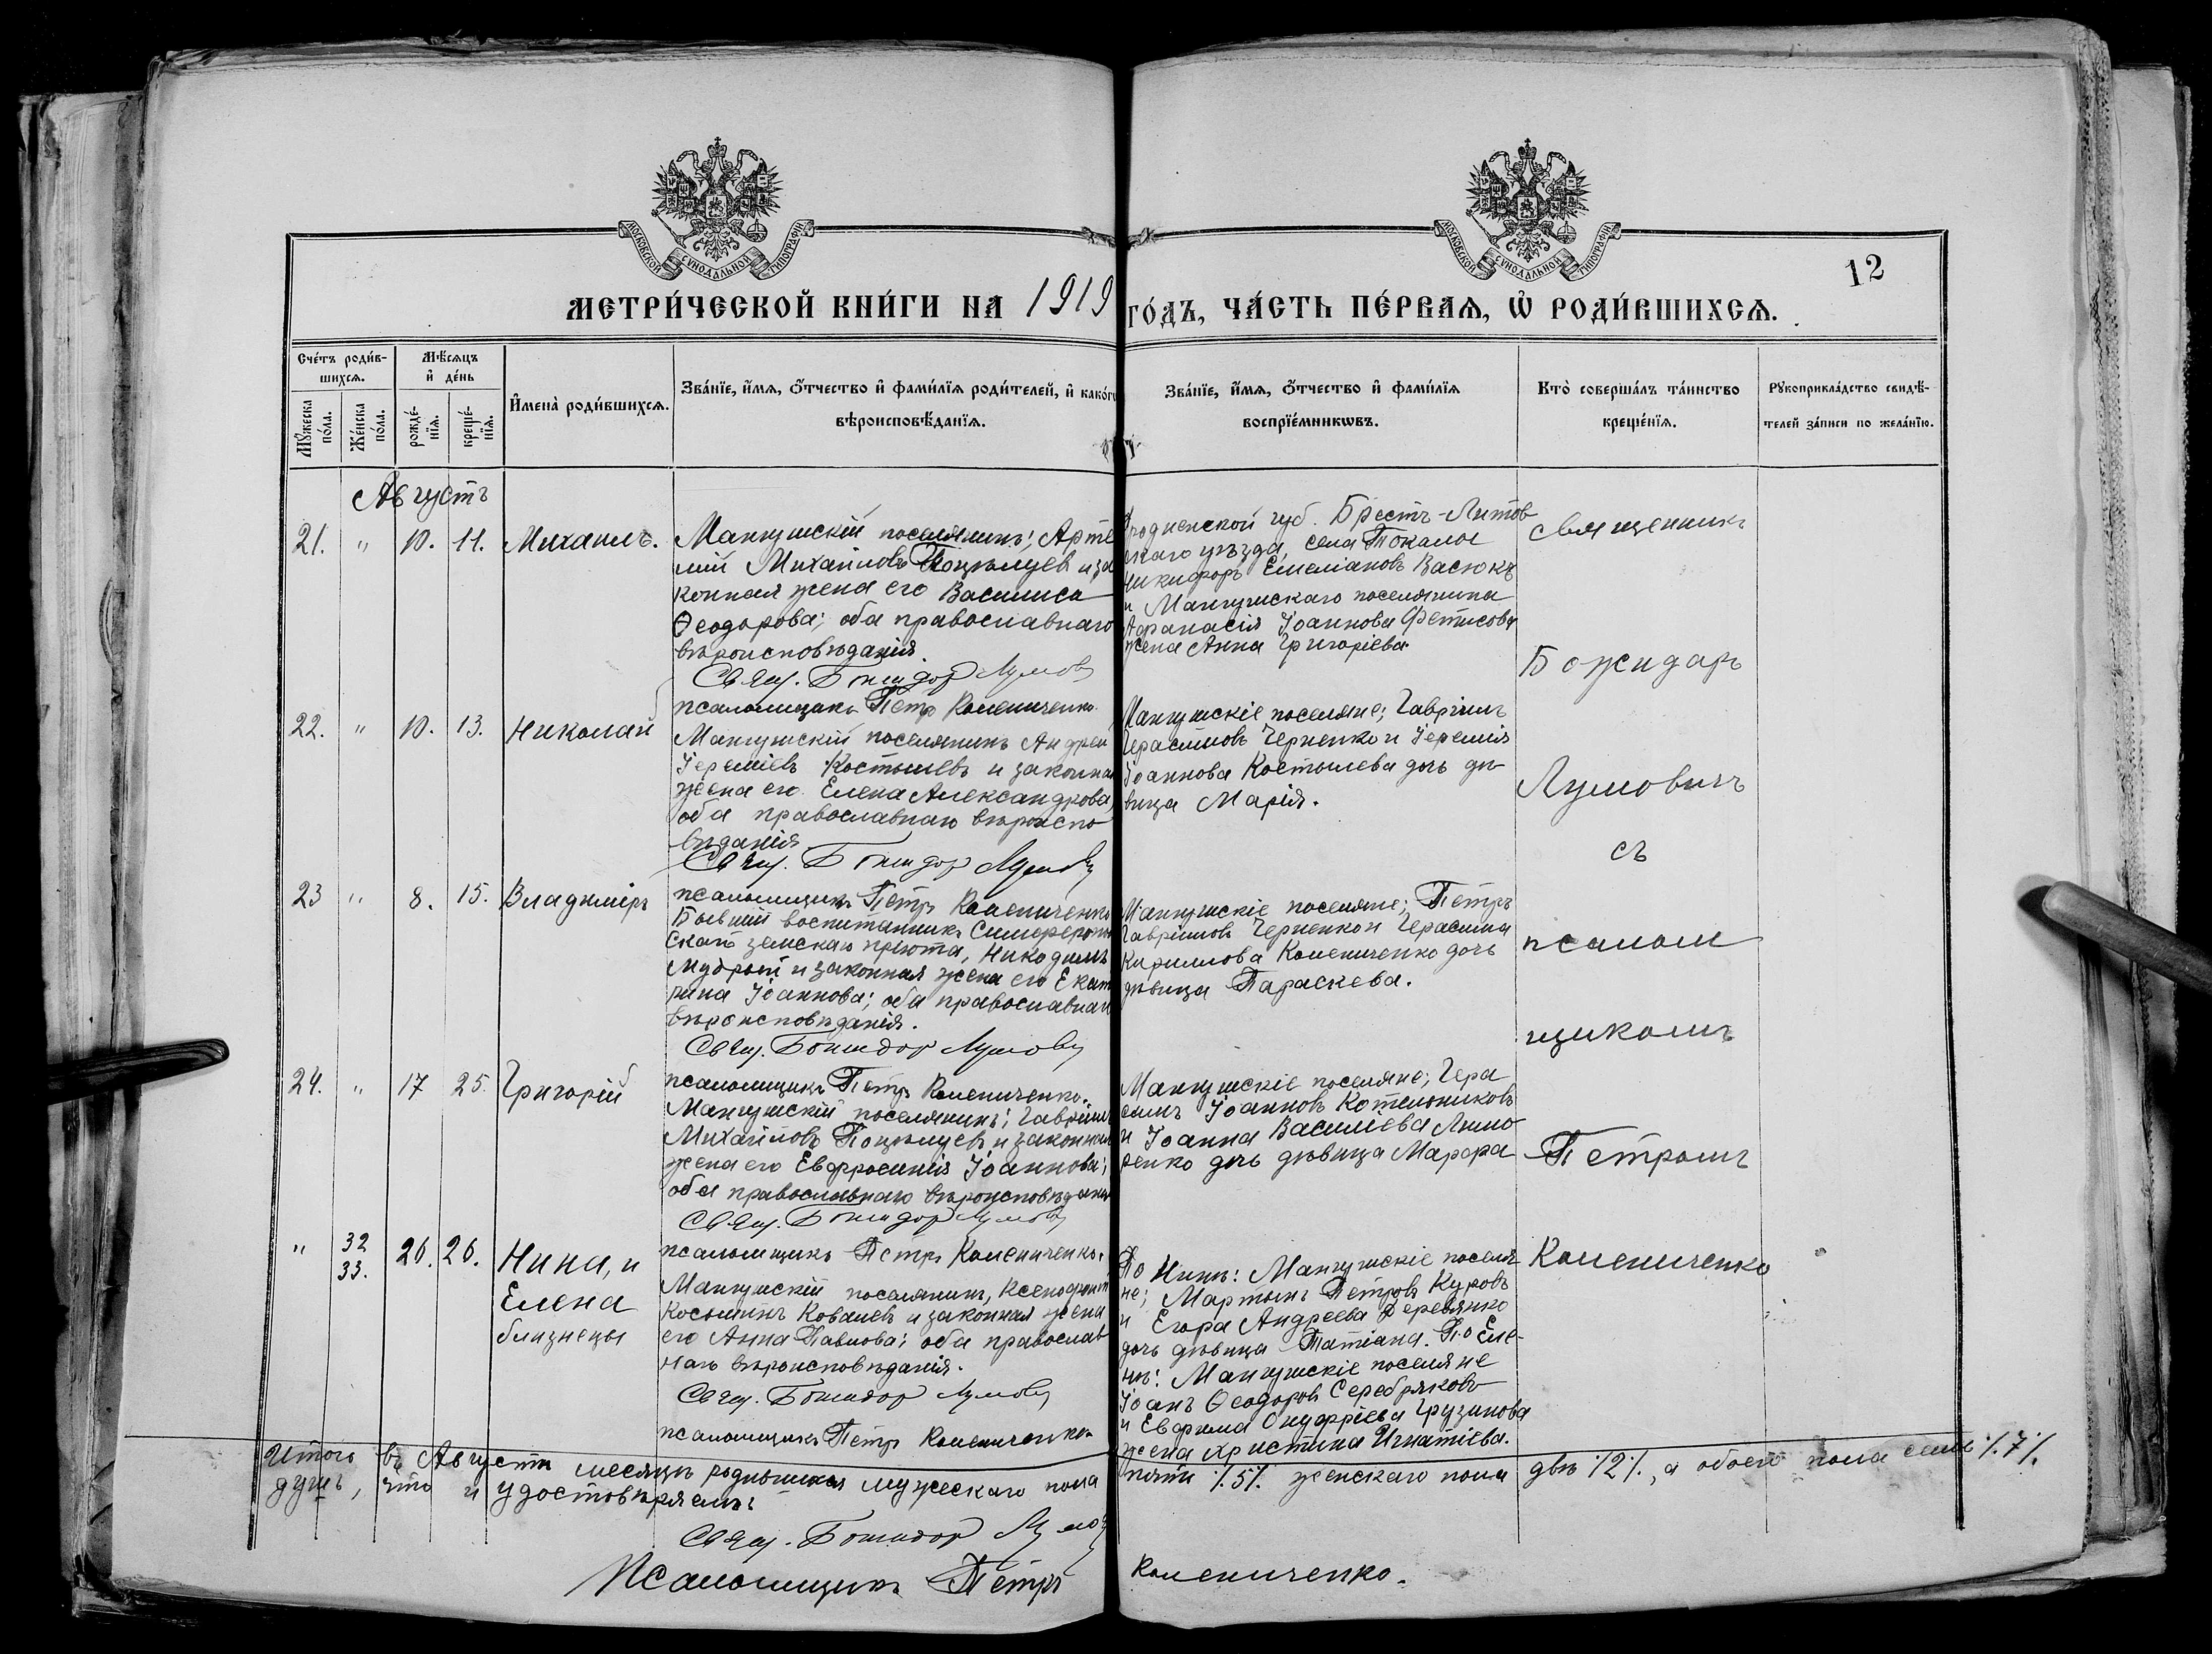 МОСКОВСКОЙ СѴНОДАЛЬНОЙ ТИПОГРАФІИ
МОСКОВСКОЙ СѴНОДАЛЬНОЙ ТИПОГРАФІИ
12
МЕТРИ́ЧЕСКОЙ КНИ́ГИ НА 1919 ГО́ДЪ, ЧА́СТЬ ПЕ́РВАѦ, Ѡ҆ РОДИ́ВШИХСѦ.
Сче́тъ роди́в-
шихсѧ.
Мꙋ́жеска по́ла.
Же́нска по́ла.
Мѣ́сѧцъ
и҆ де́нь
рожде́-
нїѧ.
креще́-
нїѧ.
И҆мена̀ роди́вшихсѧ.
Зва́нїе, и҆́мѧ, ѻ҆́тчество и҆ фами́лїѧ роди́телей, и҆ како́гѡ
вѣроисповѣ́данїѧ.
Зва́нїе, и҆́мѧ, ѻ҆́тчество и҆ фами́лїѧ
воспрїе́мникѡвъ.
Кто̀ соверша́лъ та́инство
креще́нїѧ.
Рꙋкоприкла́дство свидѣ́-
телей за́писи по жела́нїю.
Августъ
21. " 10. 11. Михаилъ.
Мангушскій поселянинъ; Арте
мій Михайловъ Поцѣлуев и за
конная жена его Василиса
Ѳеодорова; оба православнаго
вѣроисповѣданія.
Свящ. Божидар Лумов
псаломщикъ Петръ Коломиченко.
Гродненской губ. Брестъ-Литов
скаго уѣзда, села
Никифоръ Емеліановъ Васюкъ
и Мангушскаго поселянина
Афанасія Іоаннова Фетисова
жена Анна Григоріева.
священникъ
Божидаръ
Лумовичъ
съ
псалом
щикомъ
Петромъ
22. " 10. 13. Николай
Мангушскій поселянинъ Андрей
Іереміевъ Костылевъ и законная
жена его Елена Александрова,
оба православнаго вѣроиспо
вѣданія.
Свящ. Божидар Лумов
псаломщикъ Петръ
Мангушскіе поселяне; Гавріилъ
Герасимовъ Черненко и Іеремія
Іоаннова Костылева дочь дѣ
вица Марія.
23 " 8. 15. Владиміръ
Бывшій воспитанникъ Симферополь
скаго земскаго пріюта, Никодимъ
Мудрый и законная жена его Екате
рина Іоаннова; оба православнаго
вѣроисповѣданія.
Свящ. Божидар Лумов
псаломщикъ Петръ
Мангушскіе поселяне; Петръ
Гавріиловъ Черненко и Герасима
Кириллова дочь
дѣвица Параскева.
24. " 17 25. Григорій
Мангушскій поселянинъ; Гавріилъ
Михайловъ Поцѣлуевъ и законная
жена его Евфросинія Іоаннова;
оба православнаго вѣроисповѣданія
Свящ. Божидар Лумов
псаломщикъ Петръ
Мангушскіе поселяне; Гера
симъ Іоанновъ Котельниковъ
и Іоанна Василіева
дочь дѣвица Марфа
" 32 33. 26. 26. Нина, и
Елена
близнецы
Мангушскій поселянинъ, Ксенофонтъ
Косьминъ Ковалевъ и законная жена
его Анна Павлова; оба православ
наго вѣроисповѣданія.
Свящ. Божидар Лумов
псаломщикъ Петръ
По Нинѣ: Мангушскіе поселя
не; Мартынъ Петровъ Куровъ
и Егора Андреева Деревянко
дочь дѣвица Татіана. По Еле-
нѣ: Мангушскіе поселяне
Іоанъ Ѳеодоровъ Серебряковъ
и Евфима Онуфріева Грузинова
жена Христина Игнатіева.
Итого въ Августѣ месяцѣ родившихся мужескаго пола пять %5% женскаго пола двѣ %2%, а обоего пола семь %7%.
душъ, что и удостовѣряемъ:
Свящ. Божидар Лумов
Псаломщикъ Петръ